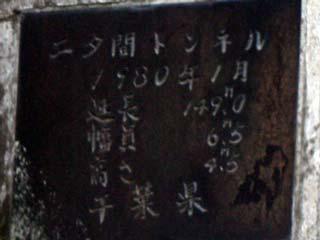 エタ間トンネル
1980年1月
延長 149.0m
幅員 6.5m
高さ 4.5m
千葉県